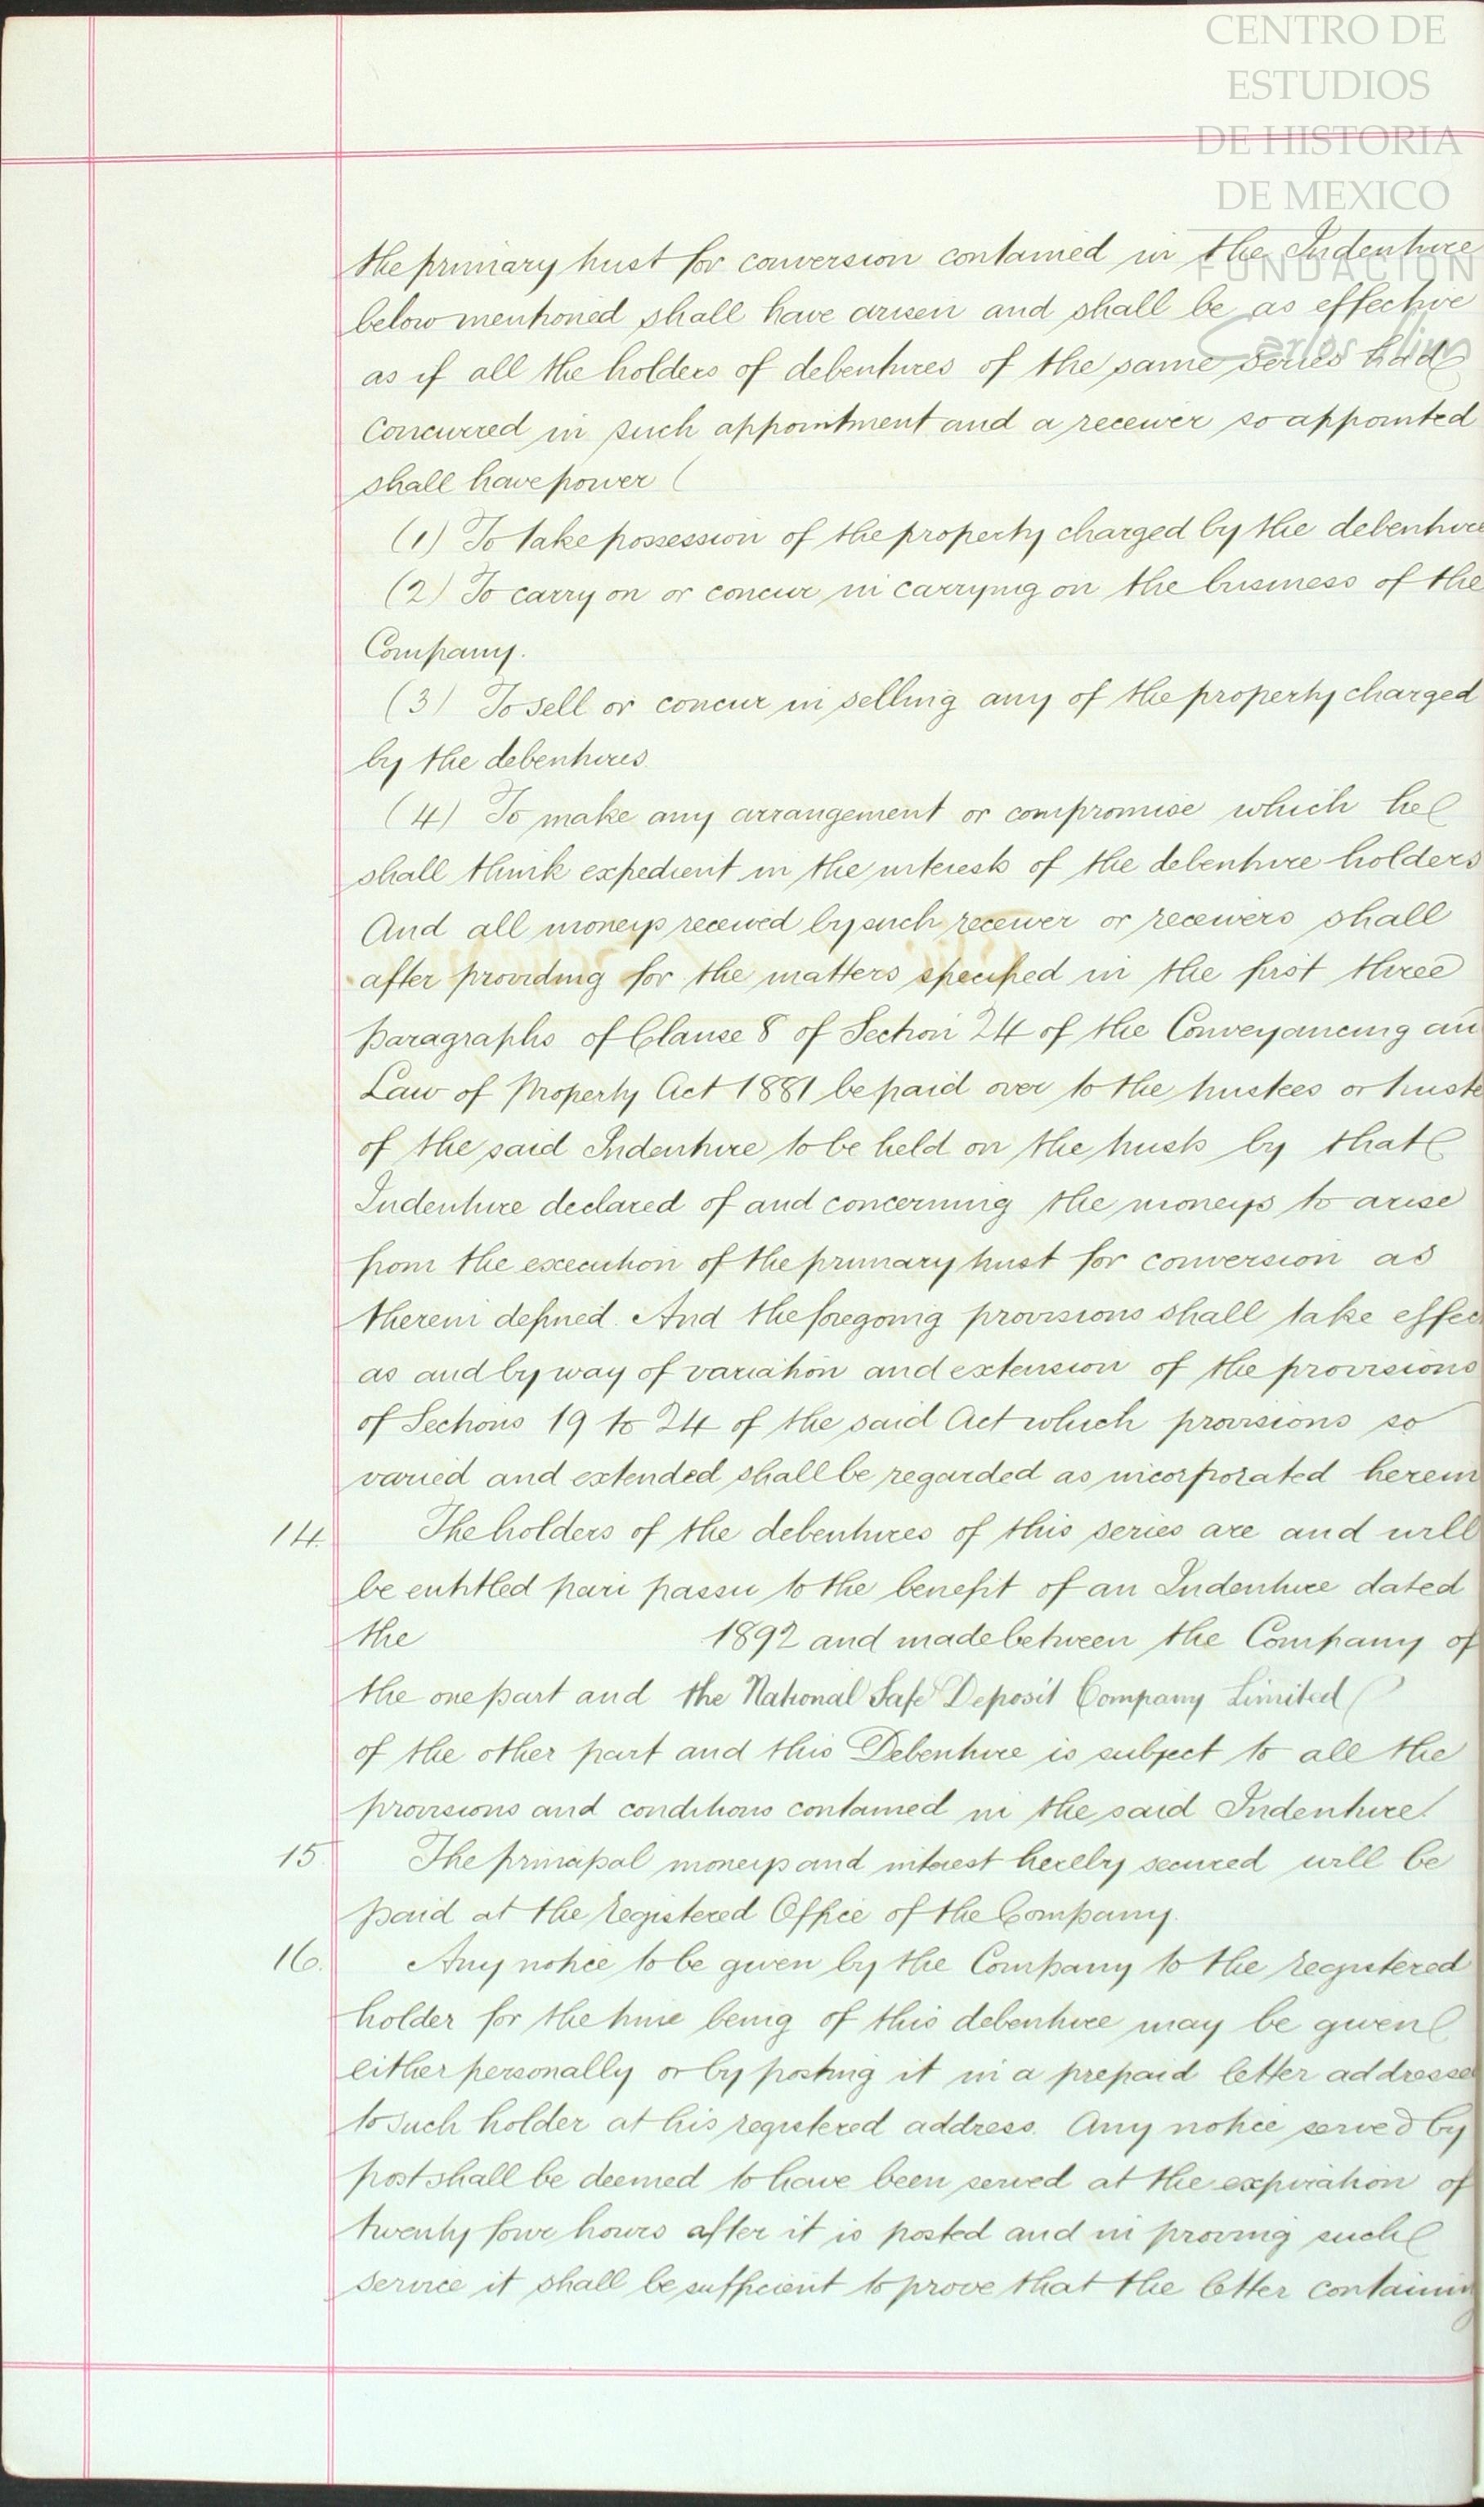 CENTRO DE
ESTUDIOS
DE HISTORIA
DE MEXICO
FUNDACIÓN
Carlos Slim
the primary trust for conversion contained in the Indenture
below mentioned shall have arisen and shall be as effective
as if all the holders of debentures of the same series had
concurred in such appointment and a receiver so appointed
shall have power
(1) To take possession of the property charged by the debenture
(2) To carry on or concur in carrying on the business of the
Company.
(3) To sell or concur in selling any of the property charged
by the debentures.
(4) To make any arrangement or compromise which he
shall think expedient in the interests of the debenture holders
And all moneys received by such receiver or receivers shall
after providing for the matters specified in the first three
paragraphs of Clause 8 of Section 24 of the Conveyancing an
Law of Property Act 1881 be paid over to the trustees or truste
of the said Indenture to be held on the trusts by that
Indenture declared of and concerning the moneys to arise
from the execution of the primary trust for conversion as
therein defined. And the foregoing provisions shall take effec
as and by way of variation and extension of the provisions
of Sections 19 to 24 of the said Act which provisions so
varied and extended shall be regarded as incorporated herein
14. The holders of the debentures of this series are and will
be entitled pari passu to the benefit of an Indenture dated
the 1892 and made between the Company of
the one part and the National Safe Deposit Company Limited
of the other part and this Debenture is subject to all the
provisions and conditions contained in the said Indenture.
15. The principal moneys and interest hereby secured will be
paid at the registered Office of the Company.
16. Any notice to be given by the Company to the registered
holder for the time being of this debenture may be given
either personally or by posting it in a prepaid letter addresse
to such holder at his registered address. Any notice served by
post shall be deemed to have been served at the expiration of
twenty four hours after it is posted and in proving such
service it shall be sufficient to prove that the letter containing